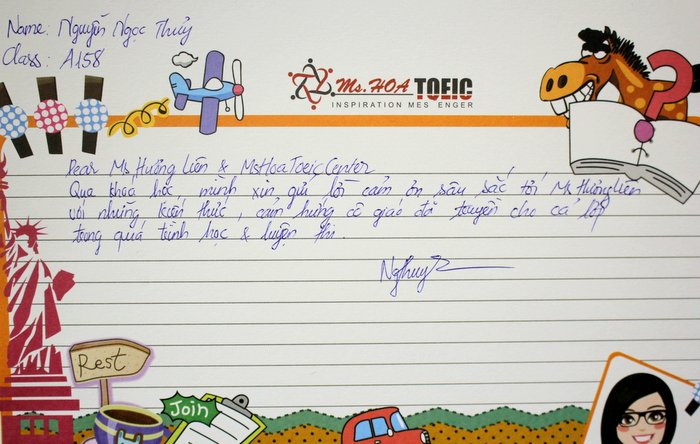 Name: Nguyễn Ngọc Thủy
Class: A158
Ms.HOA TOEIC
INSPIRATION MES ENGER
Dear Ms Hường Liên & MsHoaToeicCenter
Qua khoá học, mình xin gửi lời cảm ơn sâu sắc tới Ms Hường Liên
với những kiến thức, cảm hứng cô giáo đã truyền cho cả lớp
trong quá trình học & luyện thi.
Ngthuy
Rest
Join